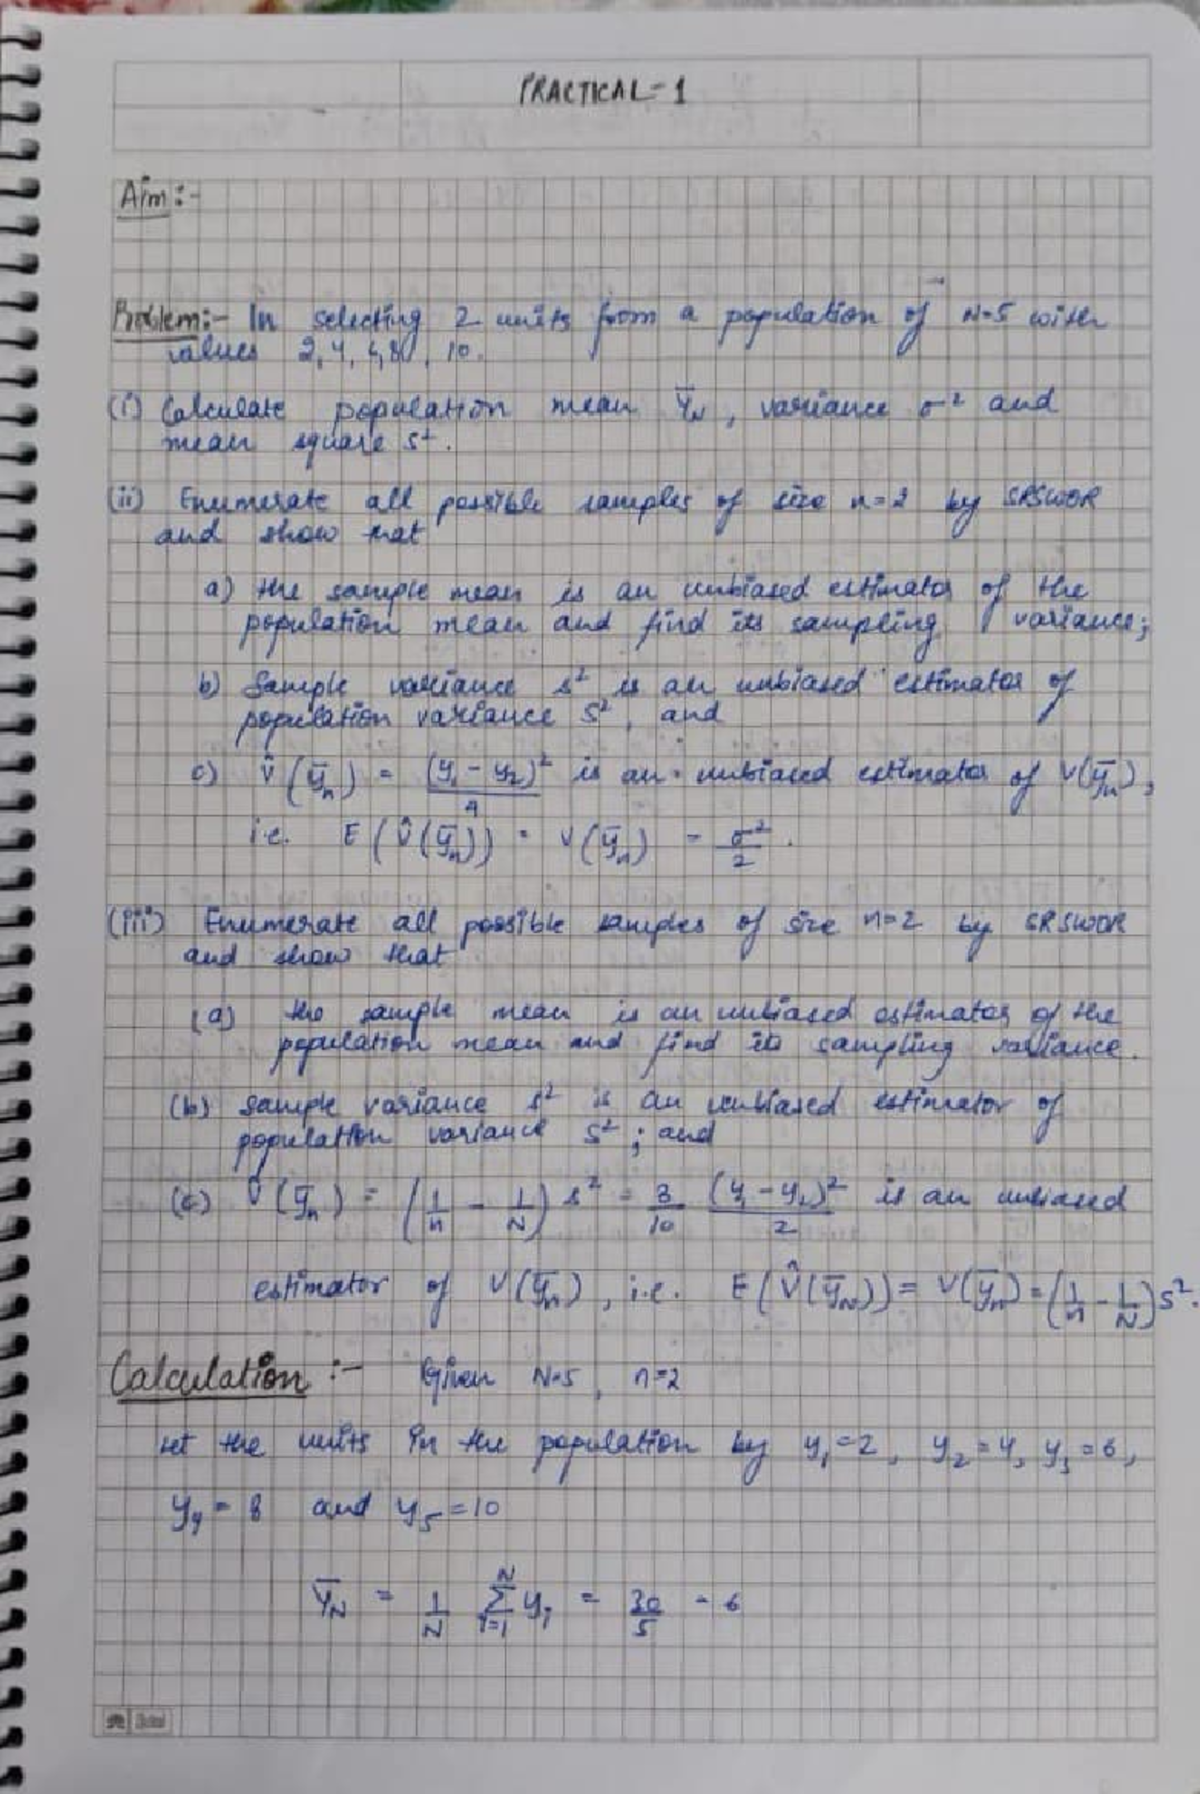 PRACTICAL - 1
Aim :-
Problem:- In selecting 2 units from a population of N=5 with
values 2, 4, 6, 8, 10.
(i) Calculate population mean Ȳ_N, variance σ² and
mean square S².
(ii) Enumerate all possible samples of size n=2 by SRSWOR
and show that
a) the sample mean is an unbiased estimator of the
population mean and find its sampling variance;
b) Sample variance s² is an unbiased estimator of
population variance S², and
c) V̂(ȳ_n) = (y₁ - y₂)²/4 is an unbiased estimator of V(ȳ_n),
i.e. E(V̂(ȳ_n)) = V(ȳ_n) = σ²/2.
(iii) Enumerate all possible samples of size n=2 by SRSWOR
and show that
(a) the sample mean is an unbiased estimator of the
population mean and find its sampling variance.
(b) sample variance s² is an unbiased estimator of
population variance S²; and
(c) V̂(ȳ_n) = (1/n - 1/N) s² = 3/10 (y₁ - y₂)²/2 is an unbiased
estimator of V(ȳ_n), i.e. E(V̂(ȳ_N)) = V(ȳ_n) = (1/n - 1/N) S².
Calculation :- Given N=5, n=2
let the units in the population by y₁=2, y₂=4, y₃=6,
y₄=8 and y₅=10
Ȳ_N = 1/N Σ_{i=1}^{N} y_i = 30/5 = 6